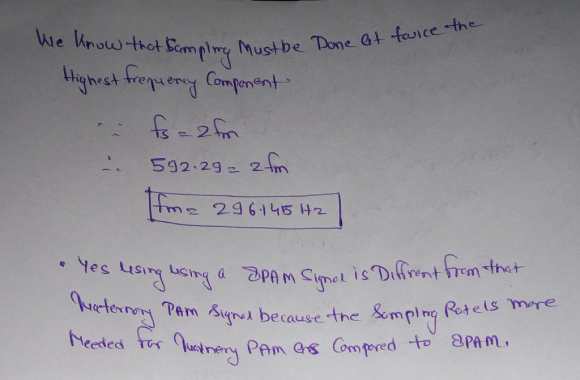 We know that Sampling Must be Done at twice the
Highest frequency Component.
∵ fs = 2fm
∴ 592.29 = 2fm
fm = 296.145 Hz
• Yes using using a 8PAM Signal is Diffrent from that
Quaternary PAM Signal because the Sampling Rate is more
Needed for Quatnery PAM as Compared to 8PAM.